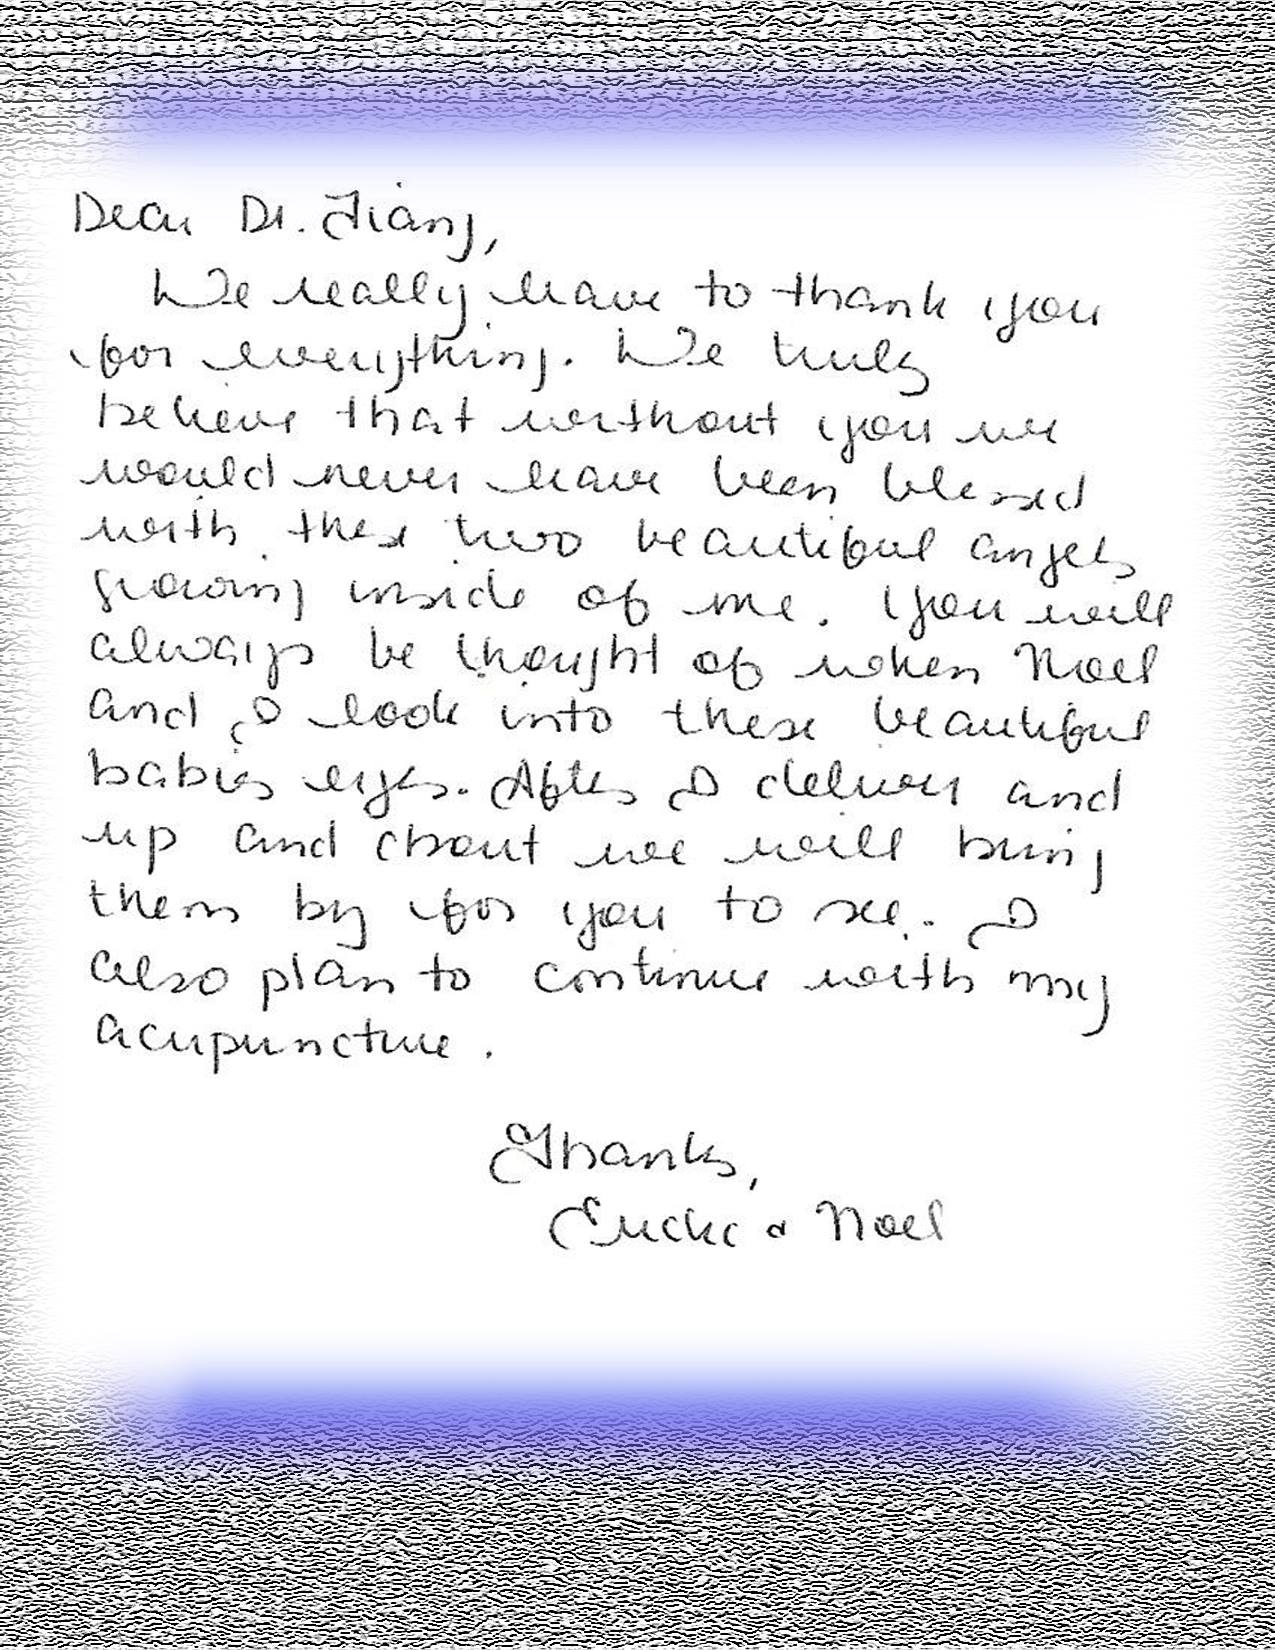 Dear Dr. Jiang,
We really have to thank you
for everything. We truly
believe that without you we
would never have been blessed
with these two beautiful angels
growing inside of me. You will
always be thought of when Noel
and I look into these beautiful
babies eyes. After I deliver and
up and about we will bring
them by for you to see. I
also plan to continue with my
acupuncture.
Thanks,
& Noel